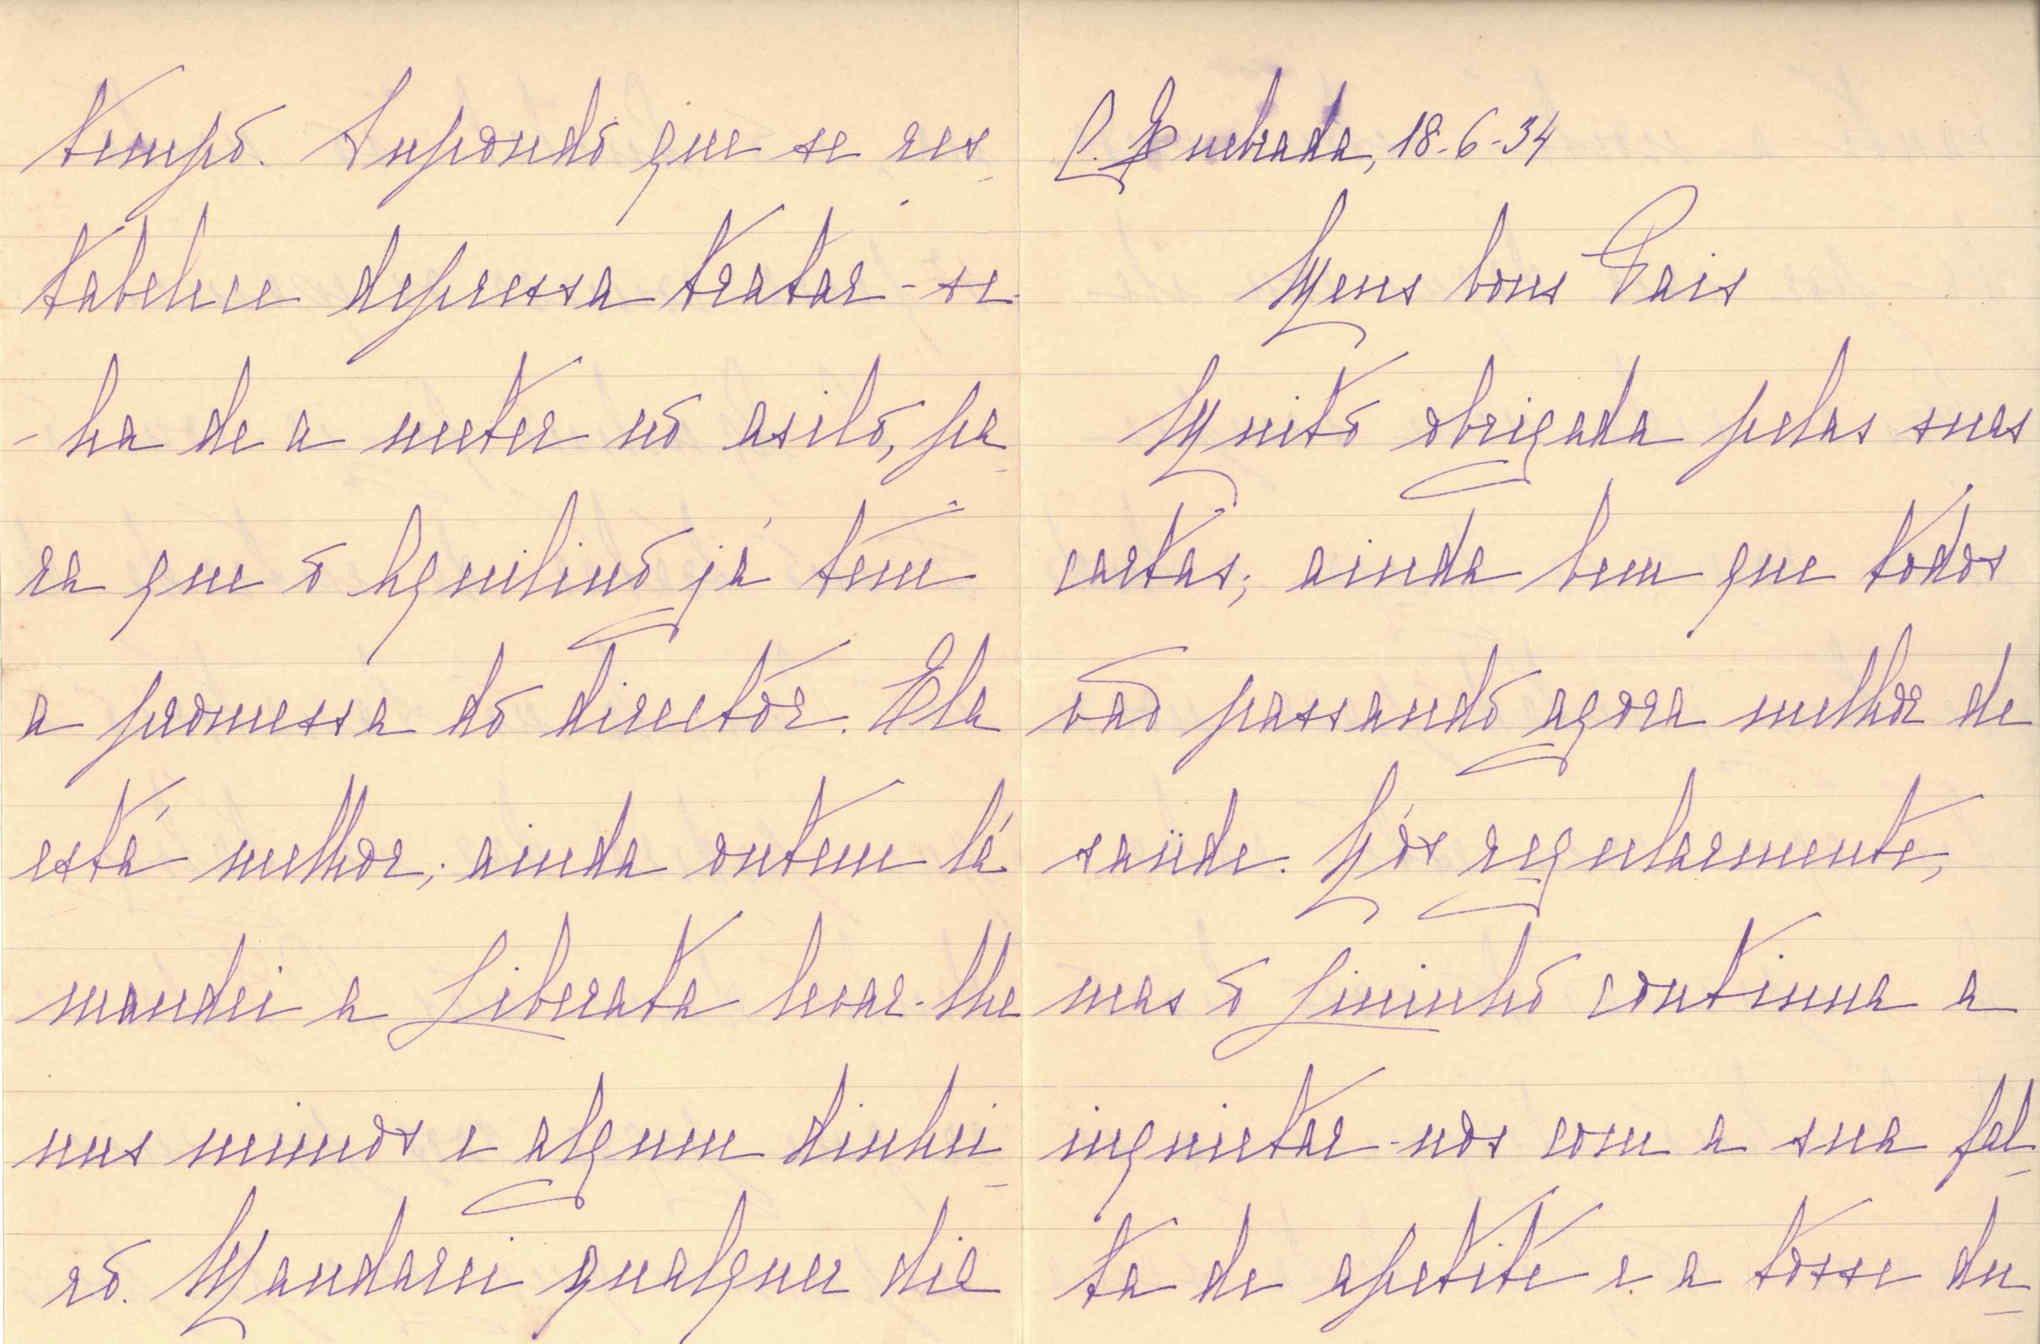 tempo. Supondo que se res-
tabelece depressa tratar-se-
-ha de a meter no asilo, pa-
ra que o Aquilino já tem
a promessa do director. Ela
está melhor; ainda ontem lá
mandei a Liberata levar-lhe
uns mimos e algum dinhei-
ro. Mandarei qualquer dia
C. Quebrada, 18-6-34
Meus bons Pais
Muito obrigada pelas suas
cartas; ainda bem que todos
vão passando agora melhor de
saüde. Nós regularmente,
mas o Lininho continua a
inquietar-nos com a sua fal-
ta de apetite e a tosse du-